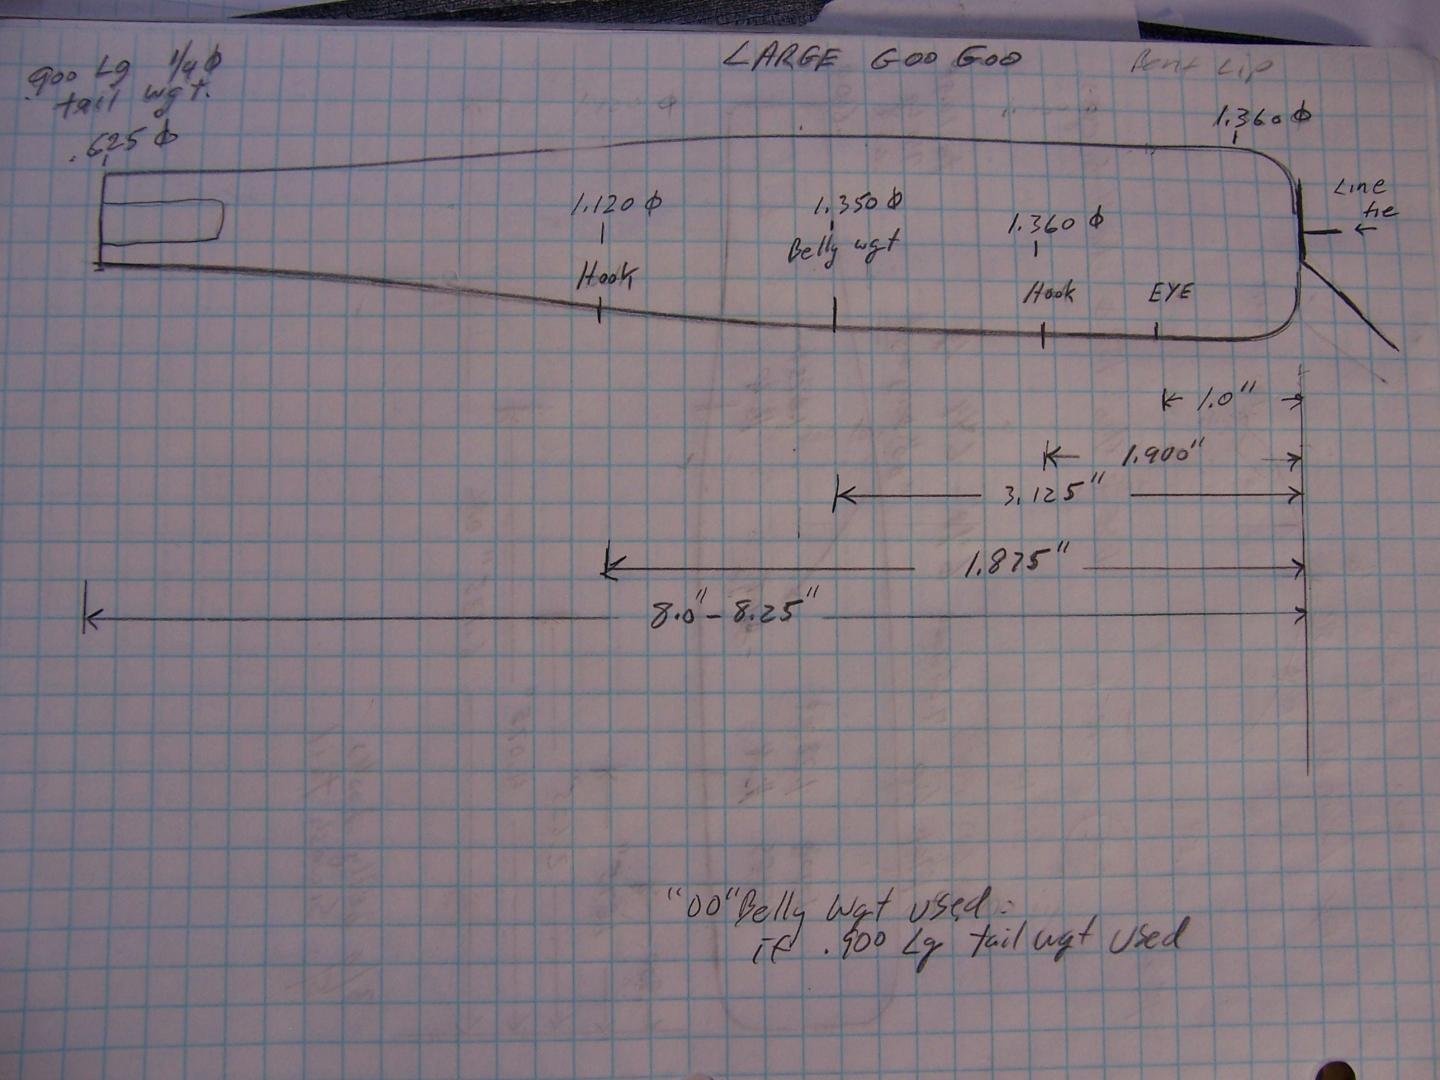 LARGE GOO GOO
Bent Lip
.900 Lg 1/4 Φ
tail wgt.
.625 Φ
1.360 Φ
Line
tie
1.120 Φ
Hook
1.350 Φ
Belly wgt
1.360 Φ
Hook
EYE
1.0"
1.900"
3.125"
1.875"
8.0" - 8.25"
"00" Belly wgt used
if .900 Lg tail wgt used